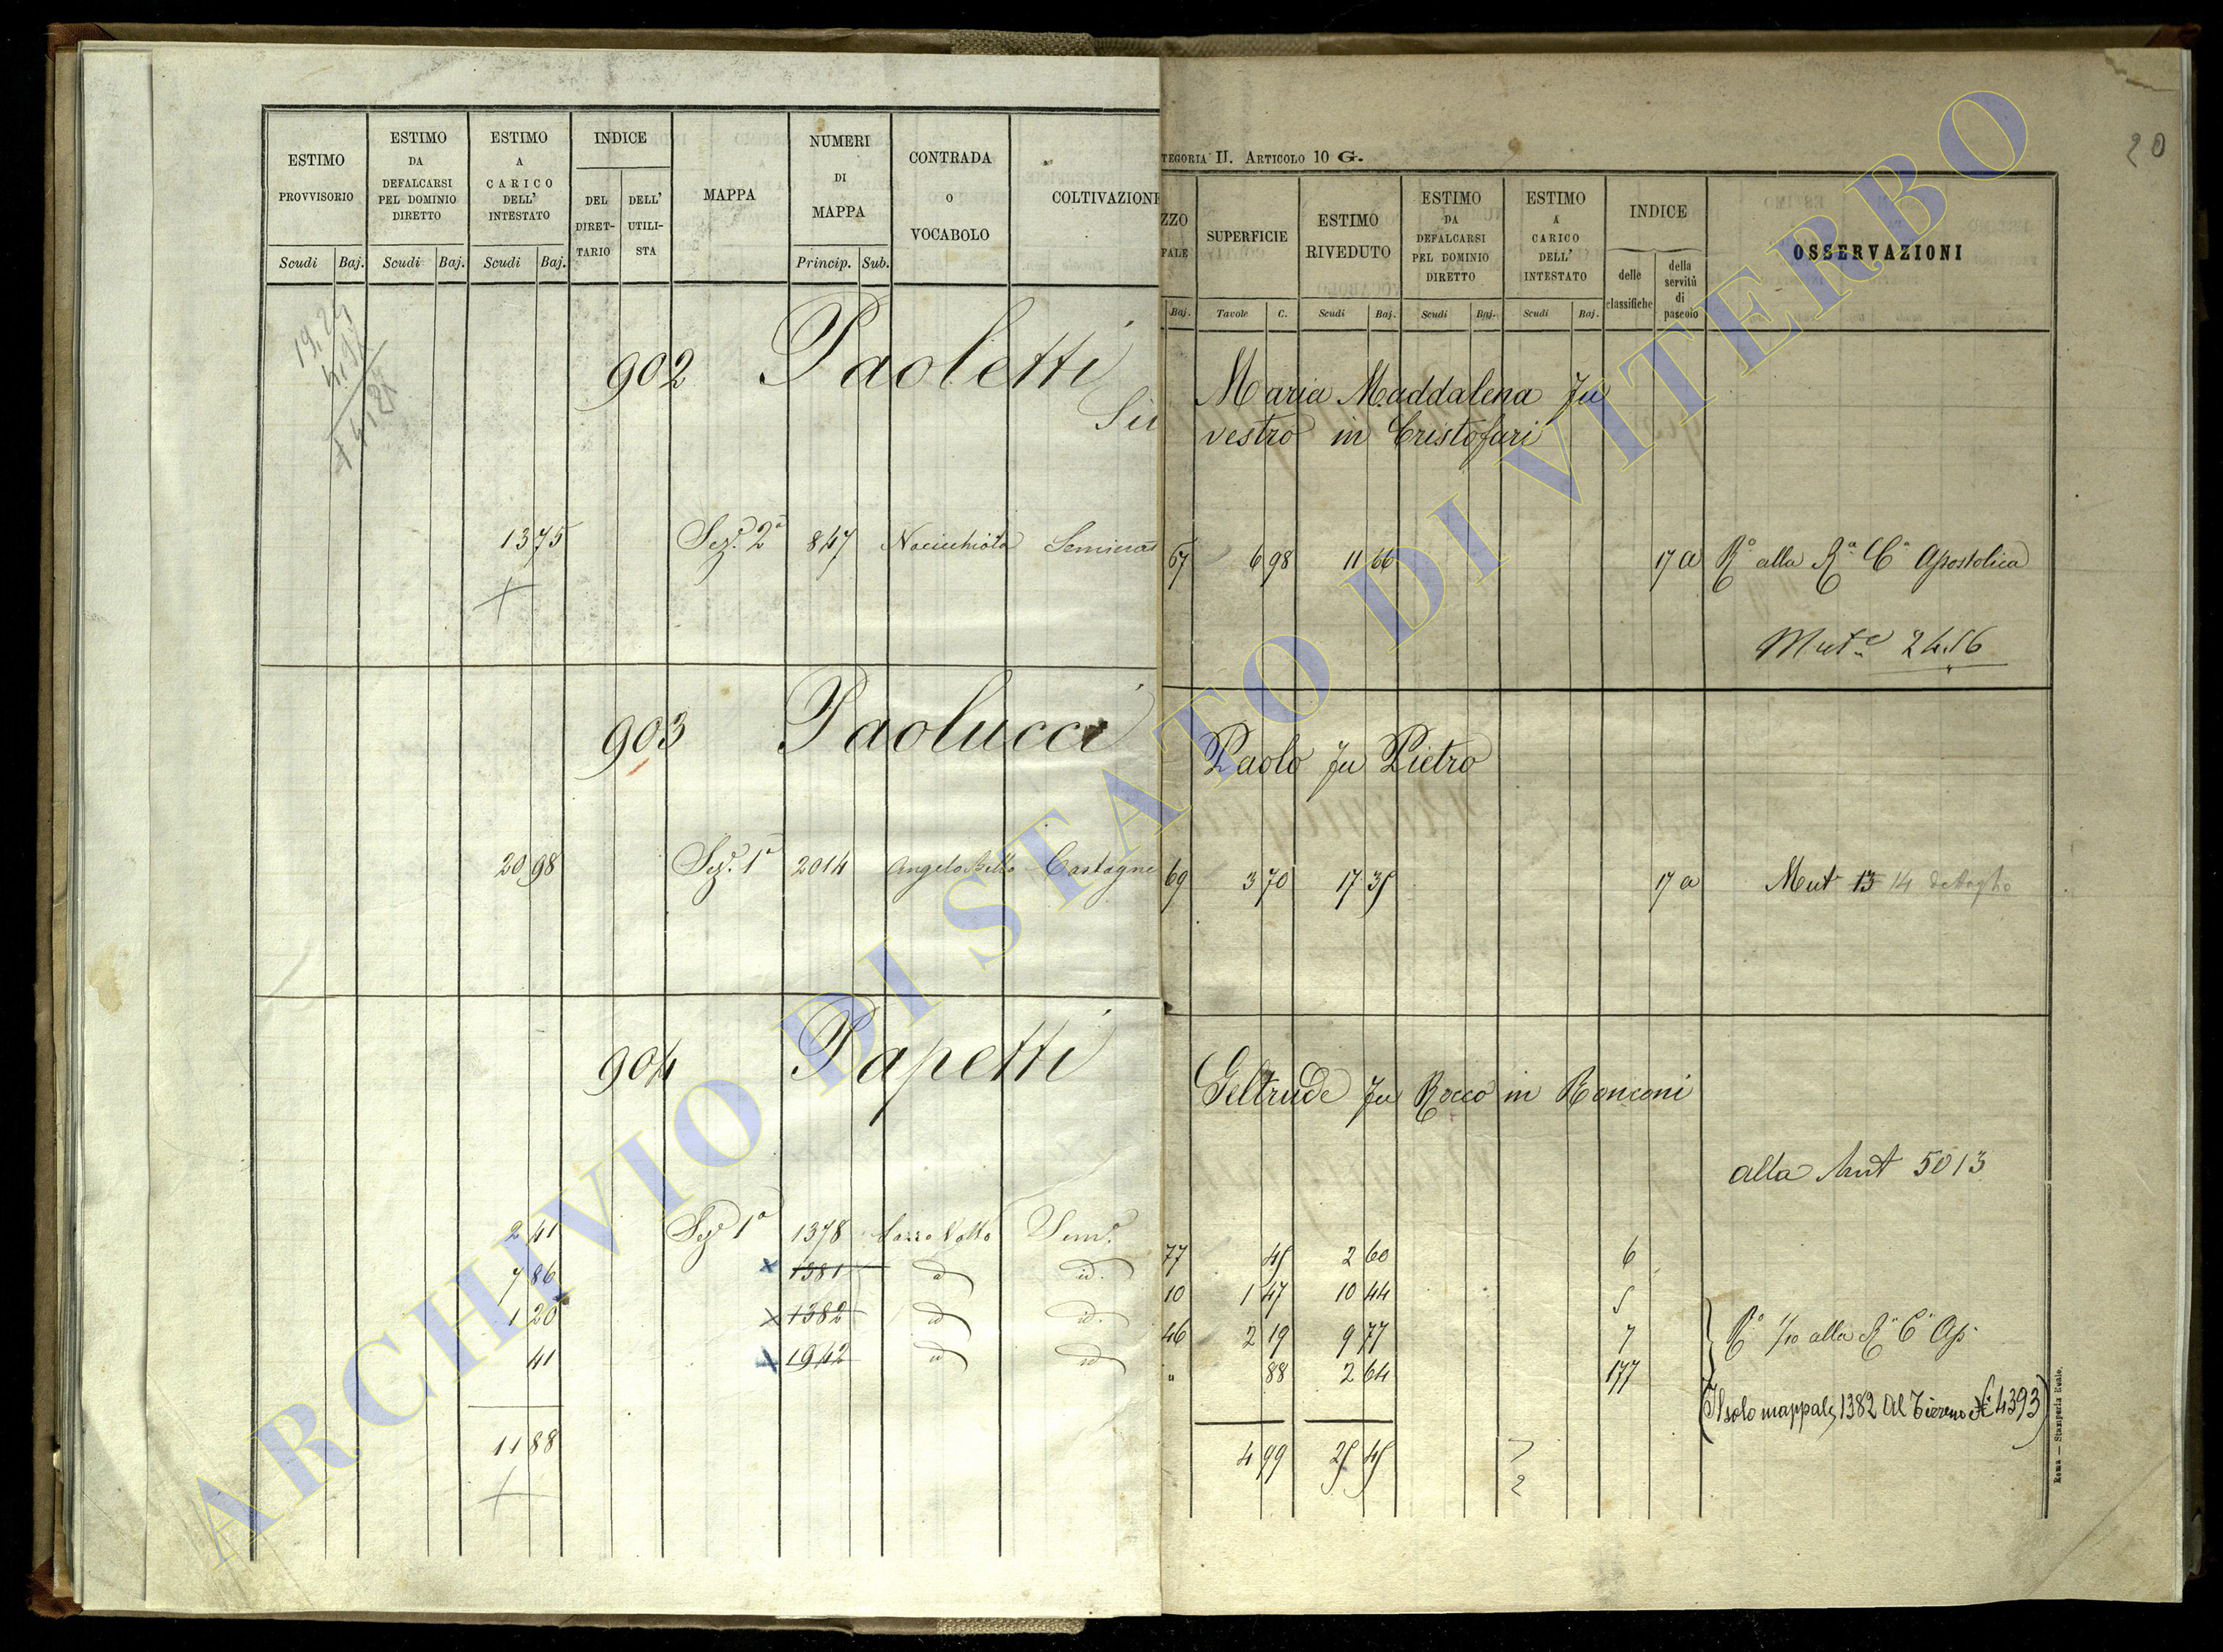 20
TEGORIA II. ARTICOLO 10 G.
ESTIMO PROVVISORIO
ESTIMO DA DEFALCARSI PEL DOMINIO DIRETTO
ESTIMO A CARICO DELL' INTESTATO
INDICE
DEL DIRET-TARIO
DELL' UTILI-STA
MAPPA
NUMERI DI MAPPA
CONTRADA O VOCABOLO
COLTIVAZIONE
Scudi Baj. Scudi Baj. Scudi Baj. Princip. Sub.
ZZO
FALE
SUPERFICIE
ESTIMO RIVEDUTO
ESTIMO DA DEFALCARSI PEL DOMINIO DIRETTO
ESTIMO A CARICO DELL' INTESTATO
INDICE
delle classifiche
della servitù di pascolo
OSSERVAZIONI
Baj. Tavole C. Scudi Baj. Scudi Baj. Scudi Baj.
902 Paoletti Maria Maddalena fu
Sil vestro in Cristofari
13 75 Sez. 2a 847 Nocicchiola Seminat 67 6 98 11 66 17 a Ro alla Ra Ca Apostolica
Mute 2456
903 Paolucci Paolo fu Pietro
20 98 Seze 1a 2014 Angelo Bello Castagne 69 3 70 17 35 17 a Mut 13 14 dettaglio
904 Papetti Geltrude fu Rocco in Ronconi
alla Mut 5013
2 41 Seze 1a 1378 Semo 77 45 2 60 6
7 86 x 1381 id id. 10 1 47 10 44 5
1 20 x 1382 id id. 46 2 19 9 77 7 Ro 1/10 alla Ra Ca Ap.
41 x 1942 id id " 88 2 64 177
(Il solo mappale 1382 Al Tirreno 4393)
11 88 4 99 25 45
2
Roma — Stamperia Reale.
ARCHIVIO DI STATO DI VITERBO